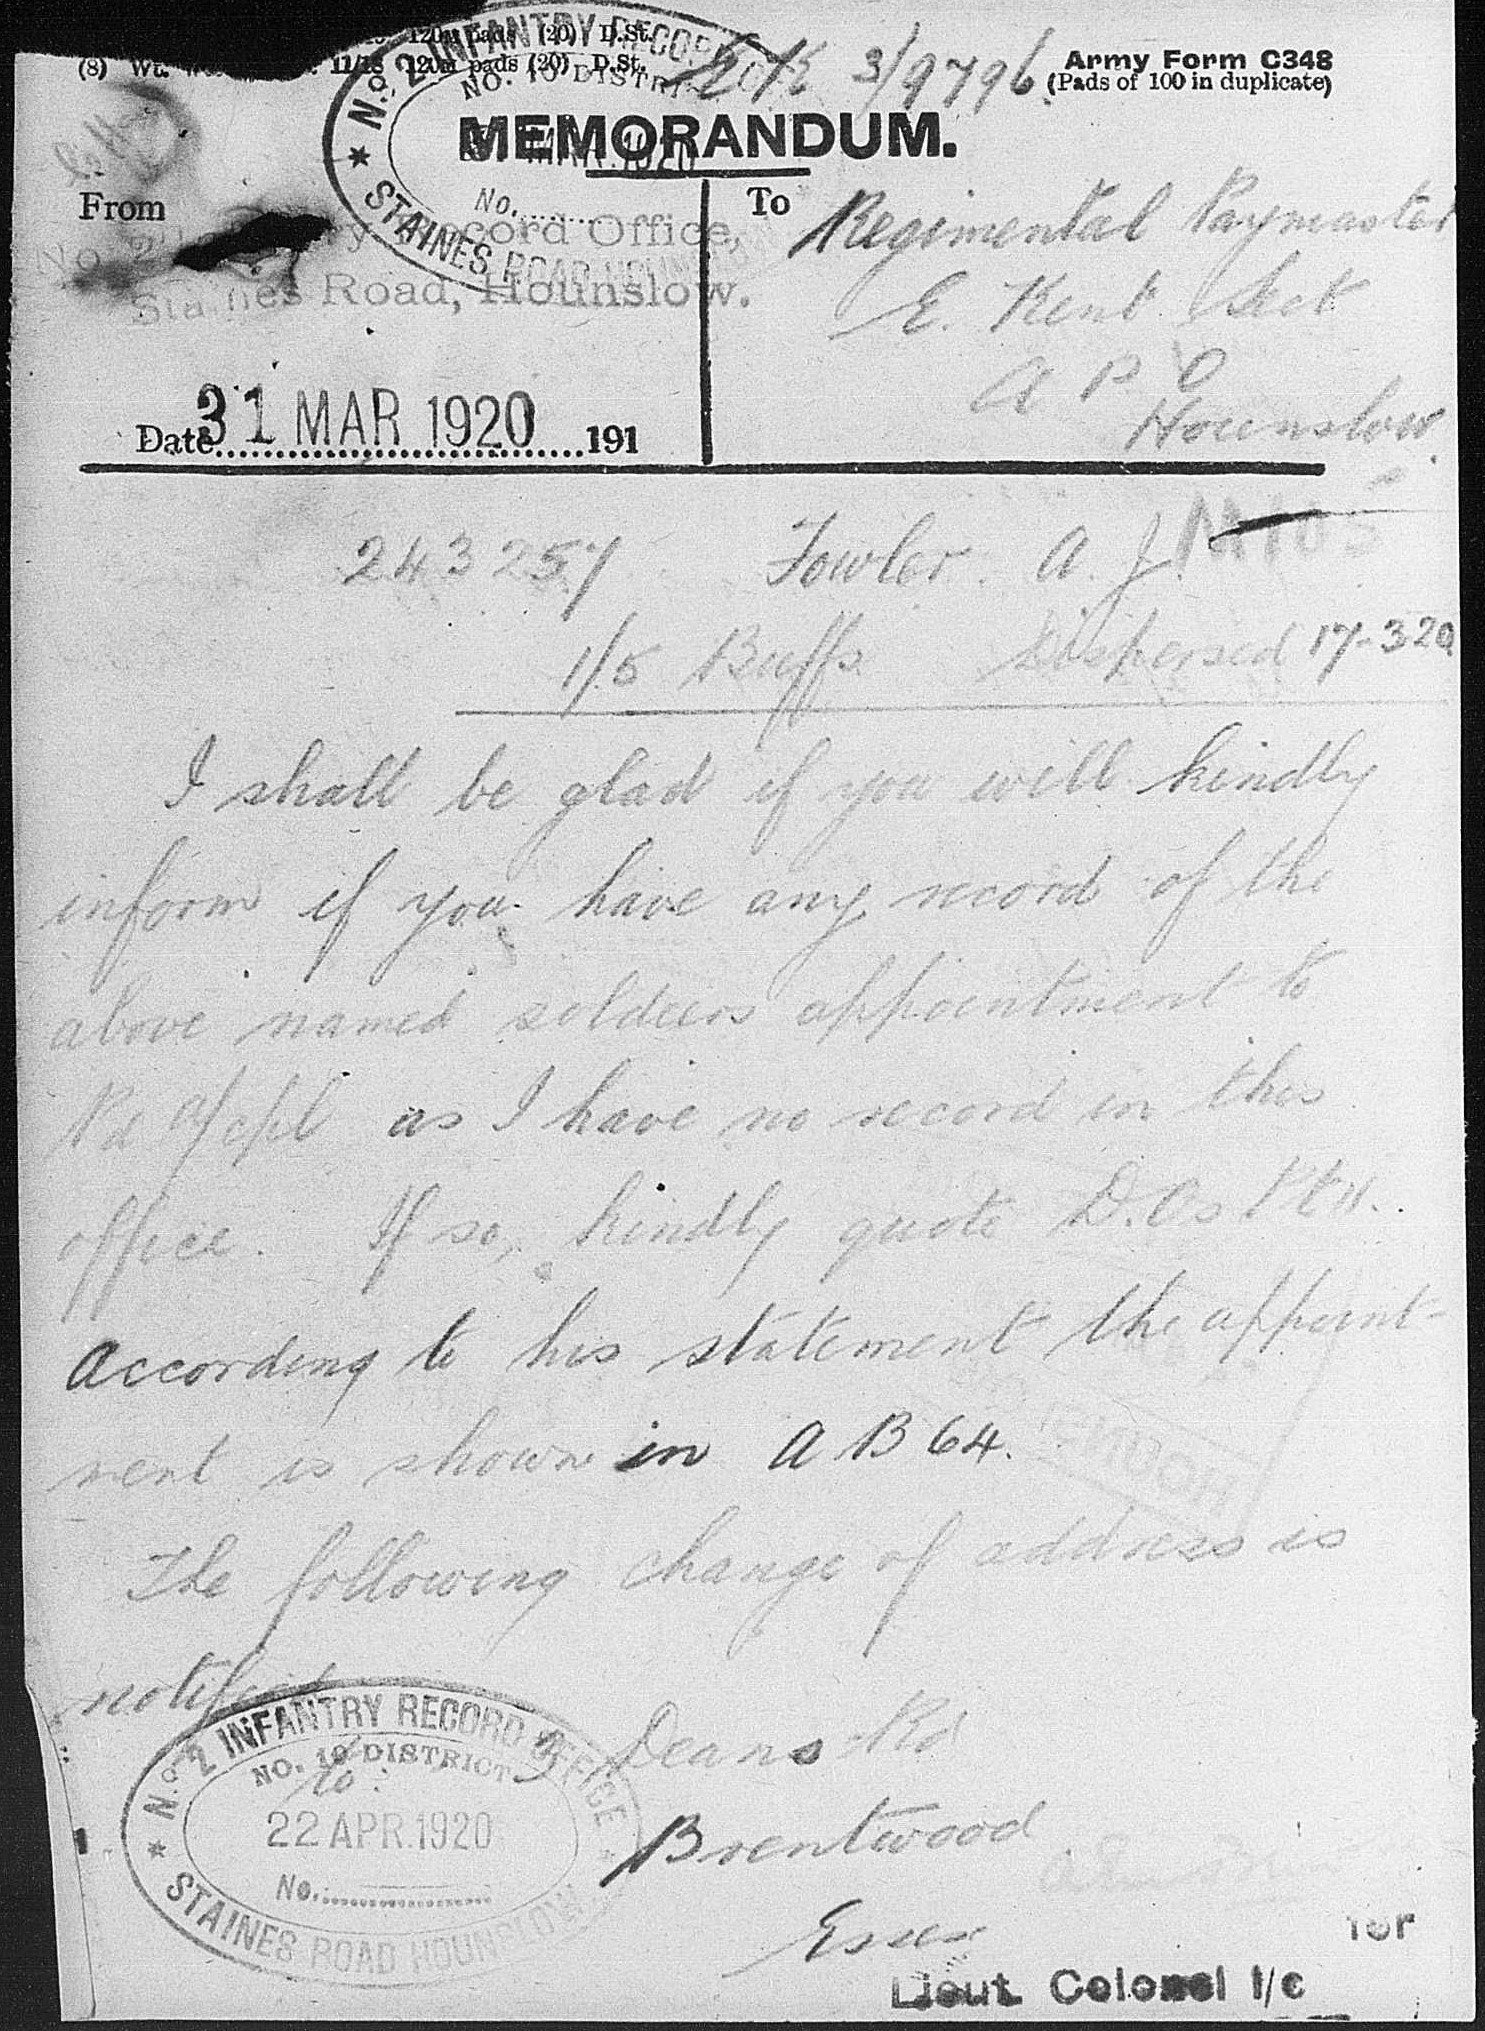 120m pads (20) D.St.
(8) Wt. 11/18 120m pads (20) D.St.
Army Form C348
(Pads of 100 in duplicate)
3/9796
No. 2 INFANTRY RECORD
NO. 10 DISTRICT
MAR. 1920
No.
STAINES ROAD HOUNSLOW
MEMORANDUM.
From
No. 2 Record Office,
Staines Road, Hounslow.
To
Regimental Paymaster
E. Kent Sect
A P O
Hounslow.
Date 31 MAR 1920 191
243257 Fowler. A. J.
1/5 Buffs Dispersed 17-3 20
I shall be glad if you will kindly
inform if you have any record of the
above named soldiers appointment to
Pd a/cpl as I have no record in this
office. If so, kindly quote D.Os Pt II.
According to his statement the appoint-
ment is shown in A B 64.
The following change of address is
notified
3 Deans Rd
Brentwood
Essex
No. 2 INFANTRY RECORD OFFICE
NO. 10 DISTRICT
22 APR. 1920
No.
STAINES ROAD HOUNSLOW
for
Lieut Colonel I/c